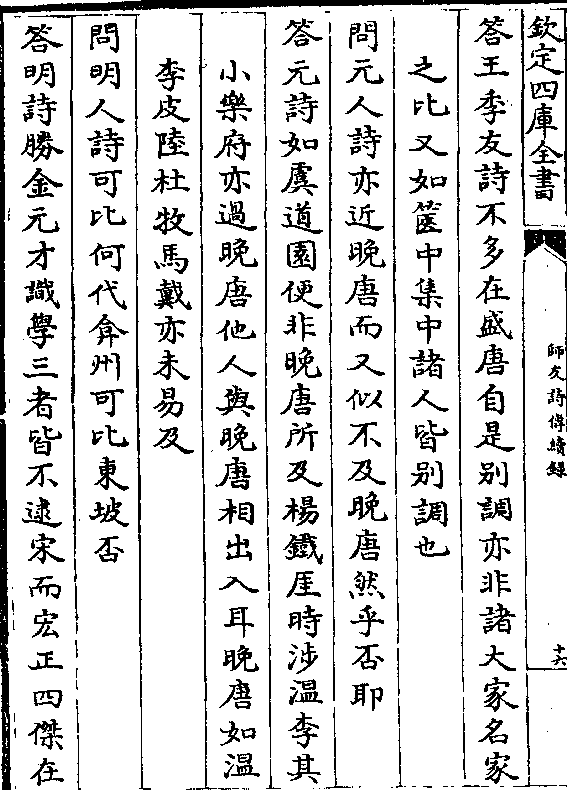 欽定四庫全書
師友詩傳續錄
十六
答王季友詩不多在盛唐自是別調亦非諸大家名家
之比又如篋中集中諸人皆別調也
問元人詩亦近晚唐而又似不及晚唐然乎否耶
答元詩如虞道園便非晚唐所及楊鐵厓時涉溫李其
小樂府亦過晚唐他人與晚唐相出入耳晚唐如溫
李皮陸杜牧馬戴亦未易及
問明人詩可比何代弇州可比東坡否
答明詩勝金元才識學三者皆不逮宋而宏正四傑在